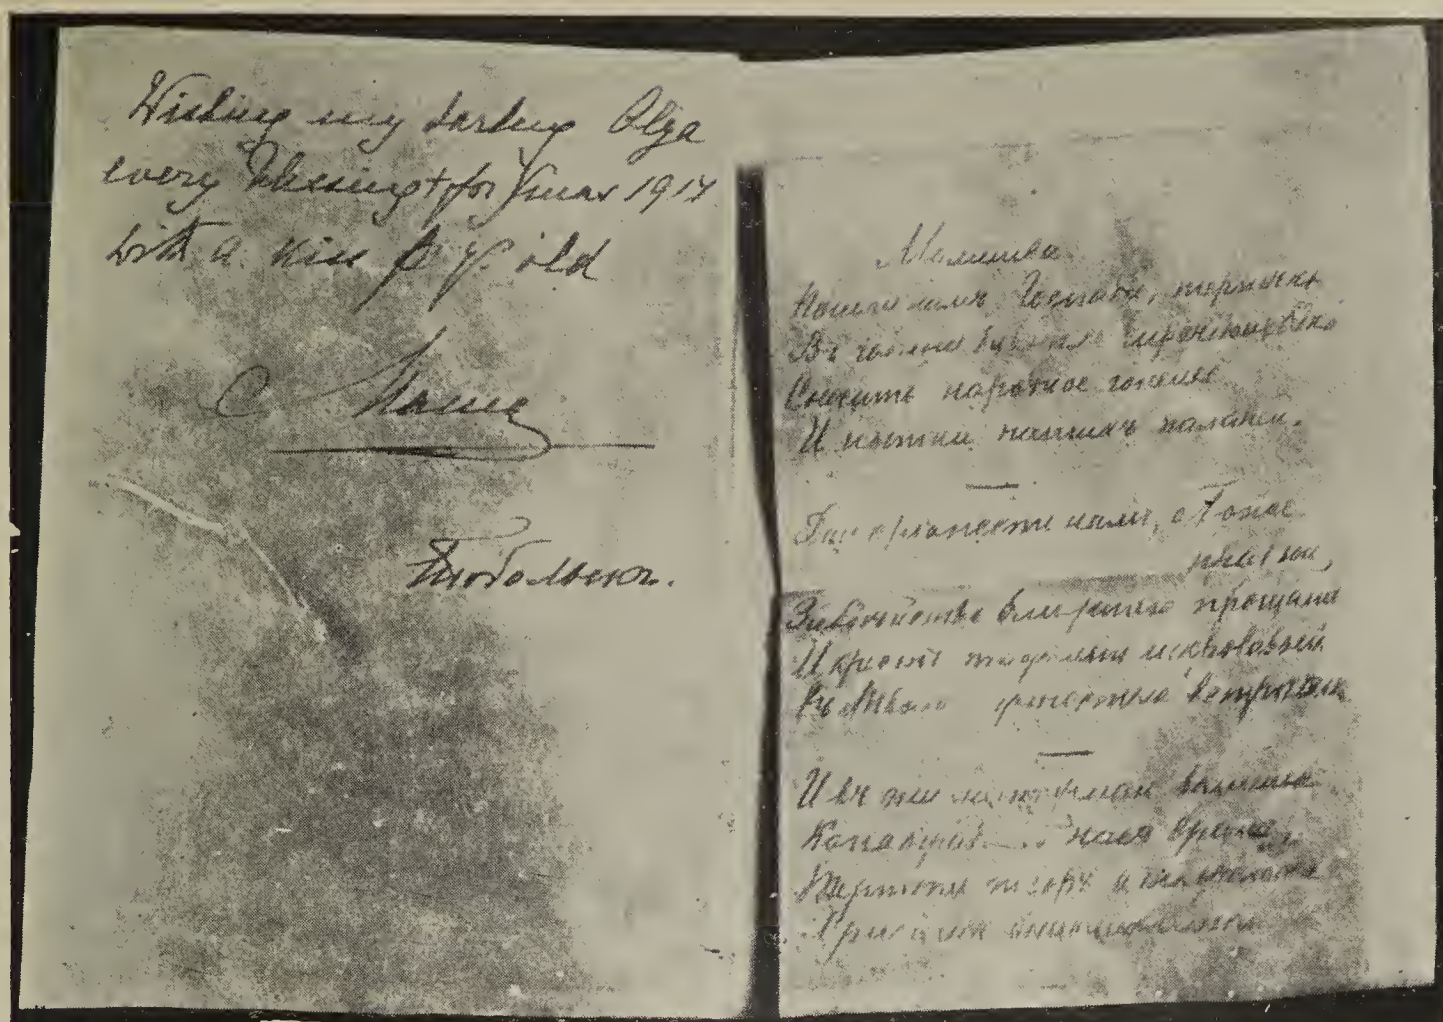 Wishing my darling Olga
every blessing for Xmas 1917
with a kiss fr yr. old
Mama
Тобольскъ.
Молитва
Пошли намъ, Господи, терпѣнье
Въ годину
Сносить народное гоненье
И пытки нашихъ палачей.
Дай крѣпости намъ, о Боже
правый,
Злодѣйство ближняго прощать
И крестъ тяжелый и кровавый
Съ Твоею встрѣчать
И въ дни волненья
Когда насъ враги,
Терпѣть позоръ и оскорбленья